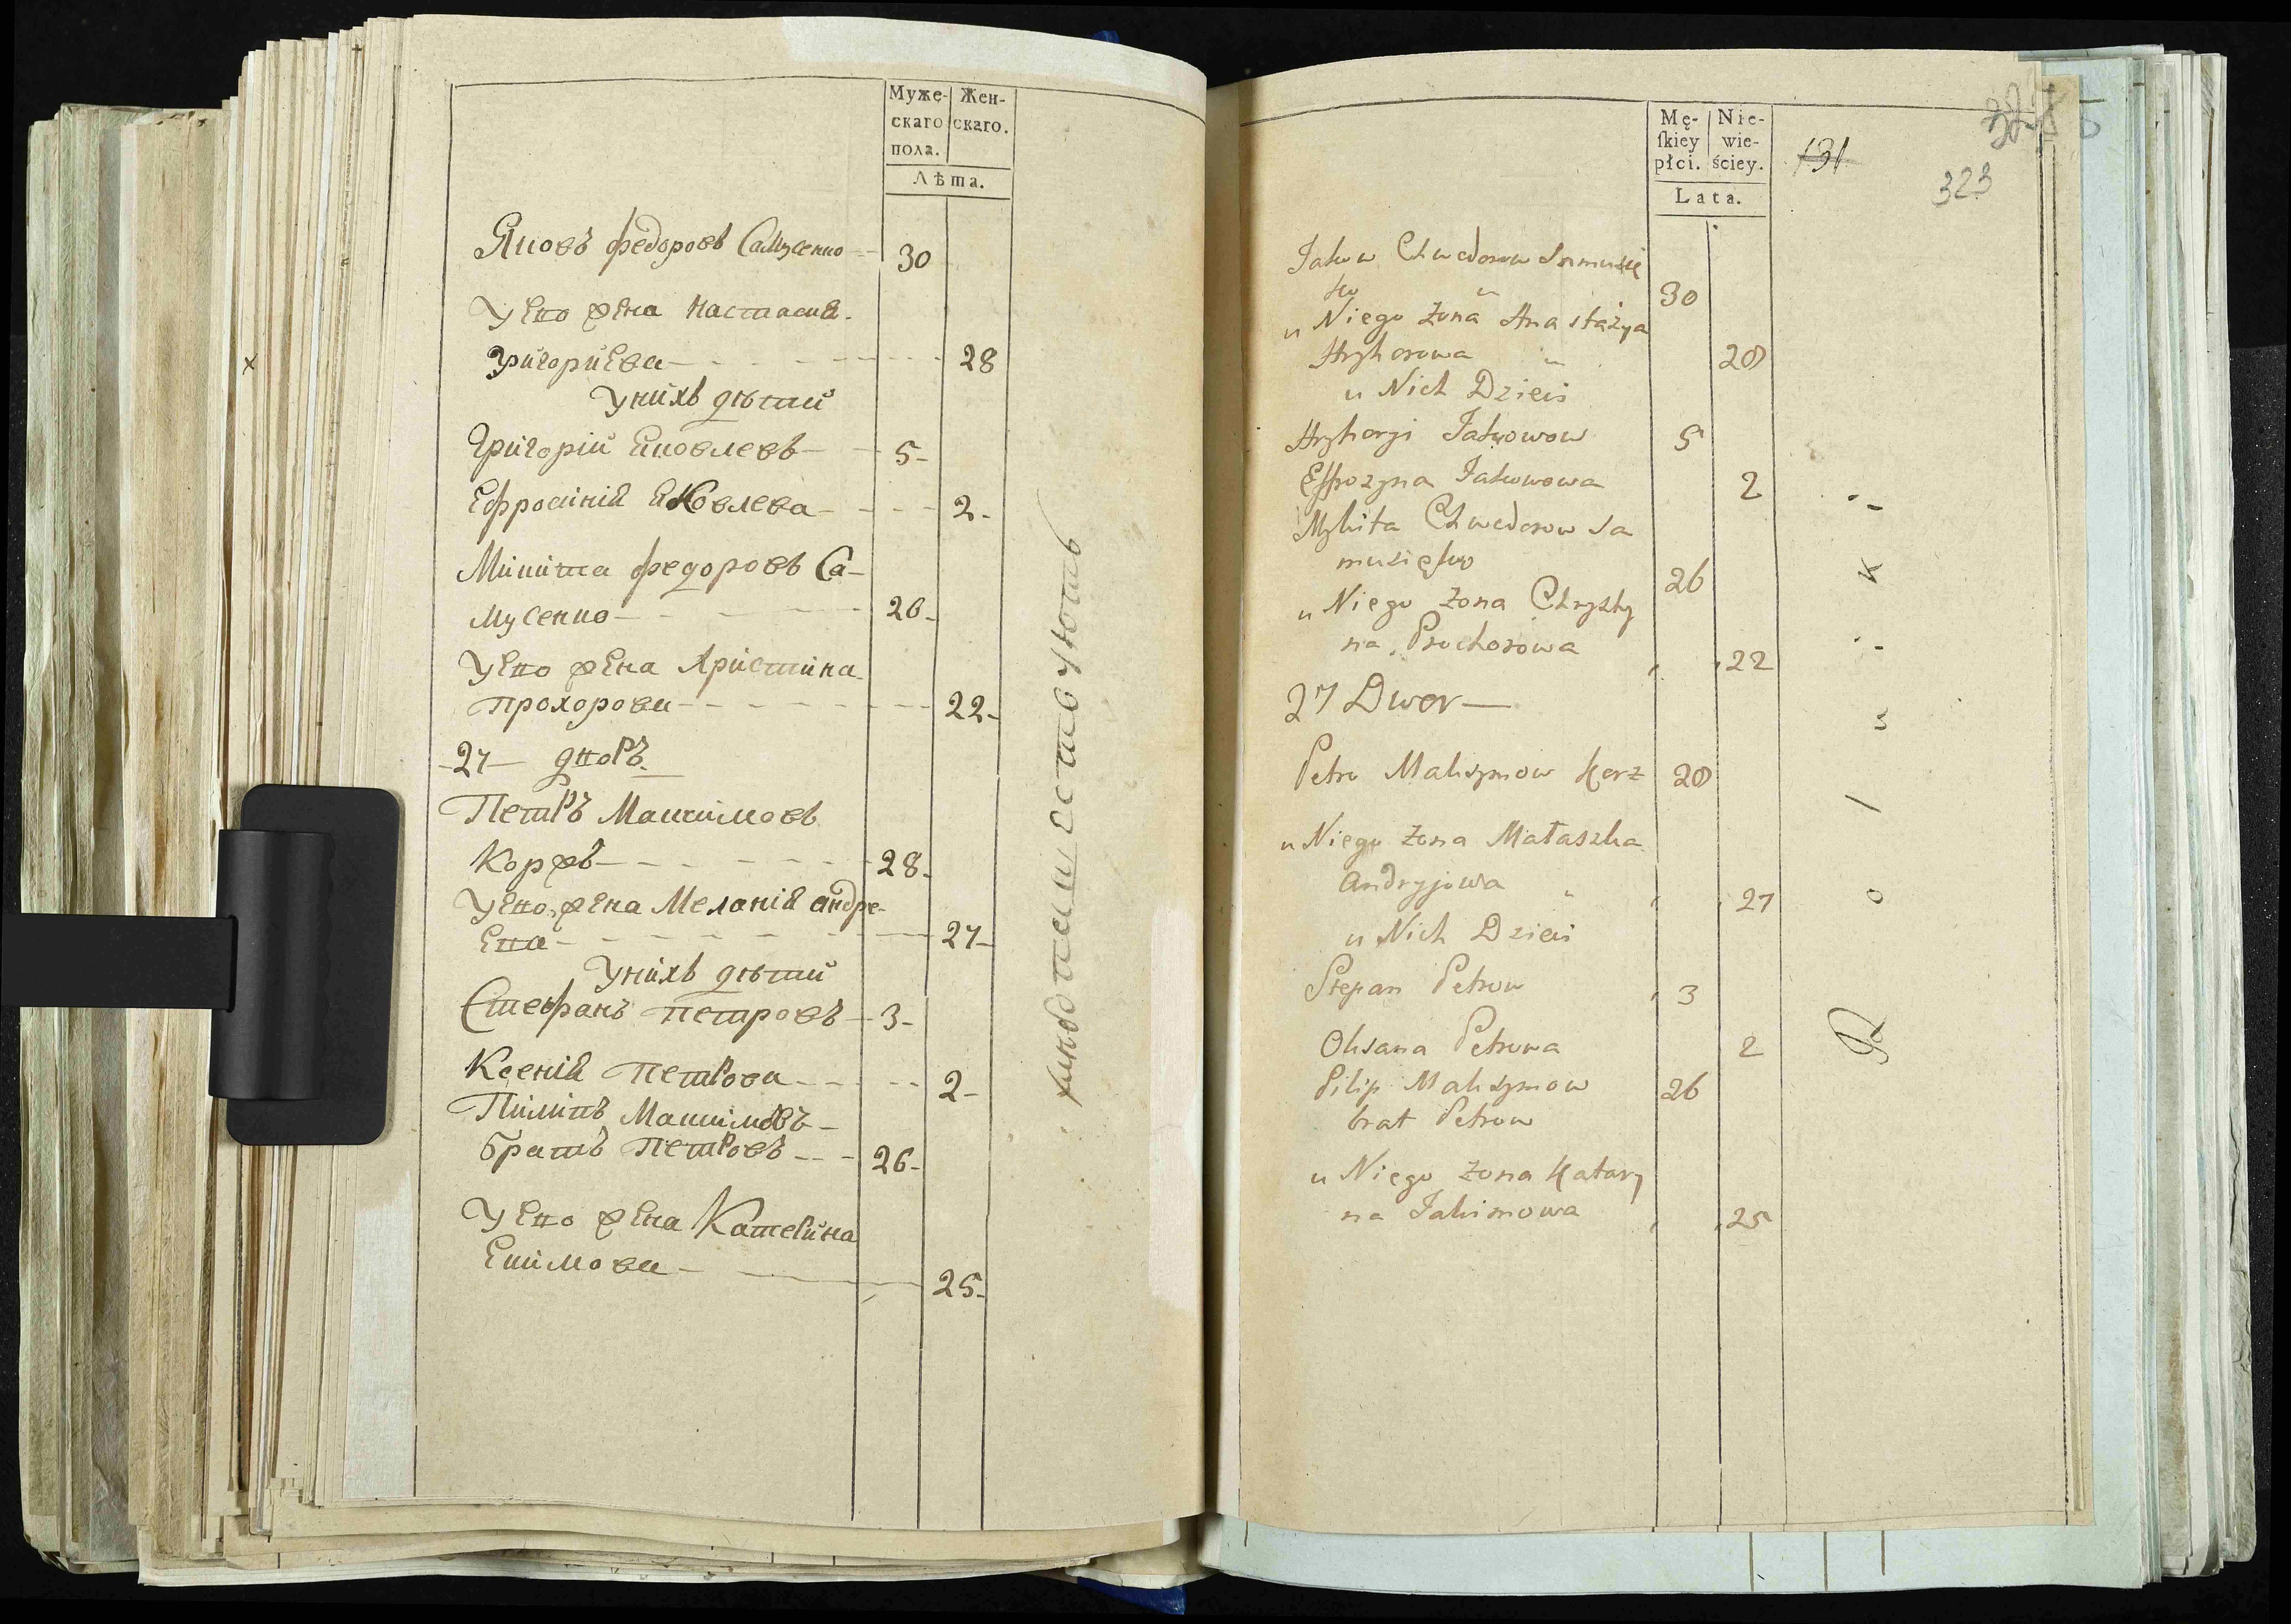 Муже-
скаго
пола.
Жен-
скаго.
Лѣта.
Яковъ Федоровъ Самусенко 30
У Его жена Настасия
Григориева 28
У нихъ дѣти
Григорій Яковлевъ 5
Ефросинія Яковлева 2
Микита Федоровъ Са-
мусенко 26
У Его жена Христина
Прохорова 22
27 дворъ
Петръ Максимовъ
Коржъ 28
У Его жена Меланія Андре-
Ева 27
У нихъ дѣти
Стефанъ Петровъ 3
Ксенія Петрова 2
Пилипъ Максимовъ
братъ Петровъ 26
У Его жена Катерина
Екимова 25
Mę-
ſkiey
płci.
Nie-
wie-
ściey.
Lata.
131
323
Jakow Chwedorow Samusię
ko 30
u Niego Zona Anastazya
Hryhorowa 28
u Nich Dzieci
Hryhoryi Jakowow 5
Effrozyna Jakowowa 2
Mykita Chwedorow Sa
musięko 26
u Niego Zona Chrysty
na Prochorowa 22
27 Dwor
Petro Maksymow Korz 28
u Niego Zona Małaszka
Andryjowa 27
u Nich Dzieci
Stepan Petrow 3
Oksana Petrowa 2
Pilip Maksymow 26
brat Petrow
u Niego Zona Katary
na Jakimowa 25